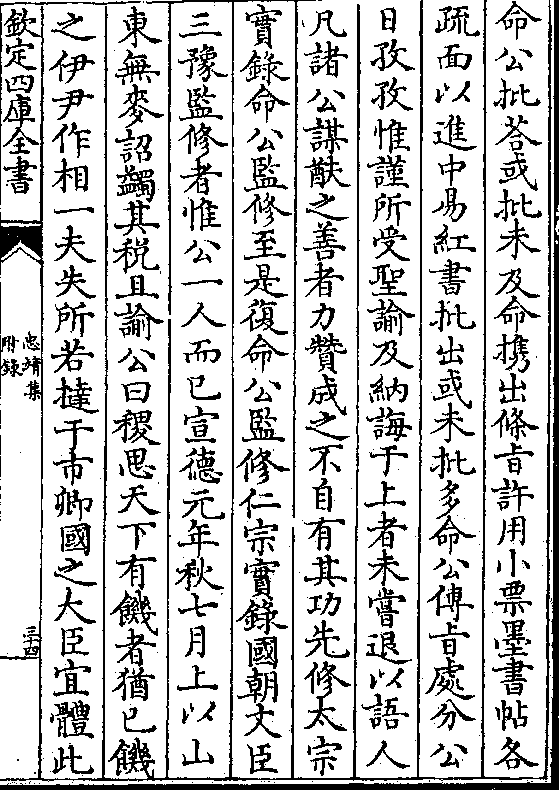 命公批荅或批未及命携出條㫖許用小票墨書帖各
疏面以進中易紅書批出或未批多命公傳㫖處分公
日孜孜惟謹所受聖諭及納誨于上者未嘗退以語人
凡諸公謀猷之善者力贊成之不自有其功先修太宗
實錄命公監修至是復命公監修仁宗實錄國朝文臣
三豫監修者惟公一人而已宣德元年秋七月上以山
東無麥詔蠲其税且諭公曰稷思天下有饑者猶已饑
之伊尹作相一夫失所若撻于市卿國之大臣宜體此
欽定四庫全書
忠靖集
附錄
三十四